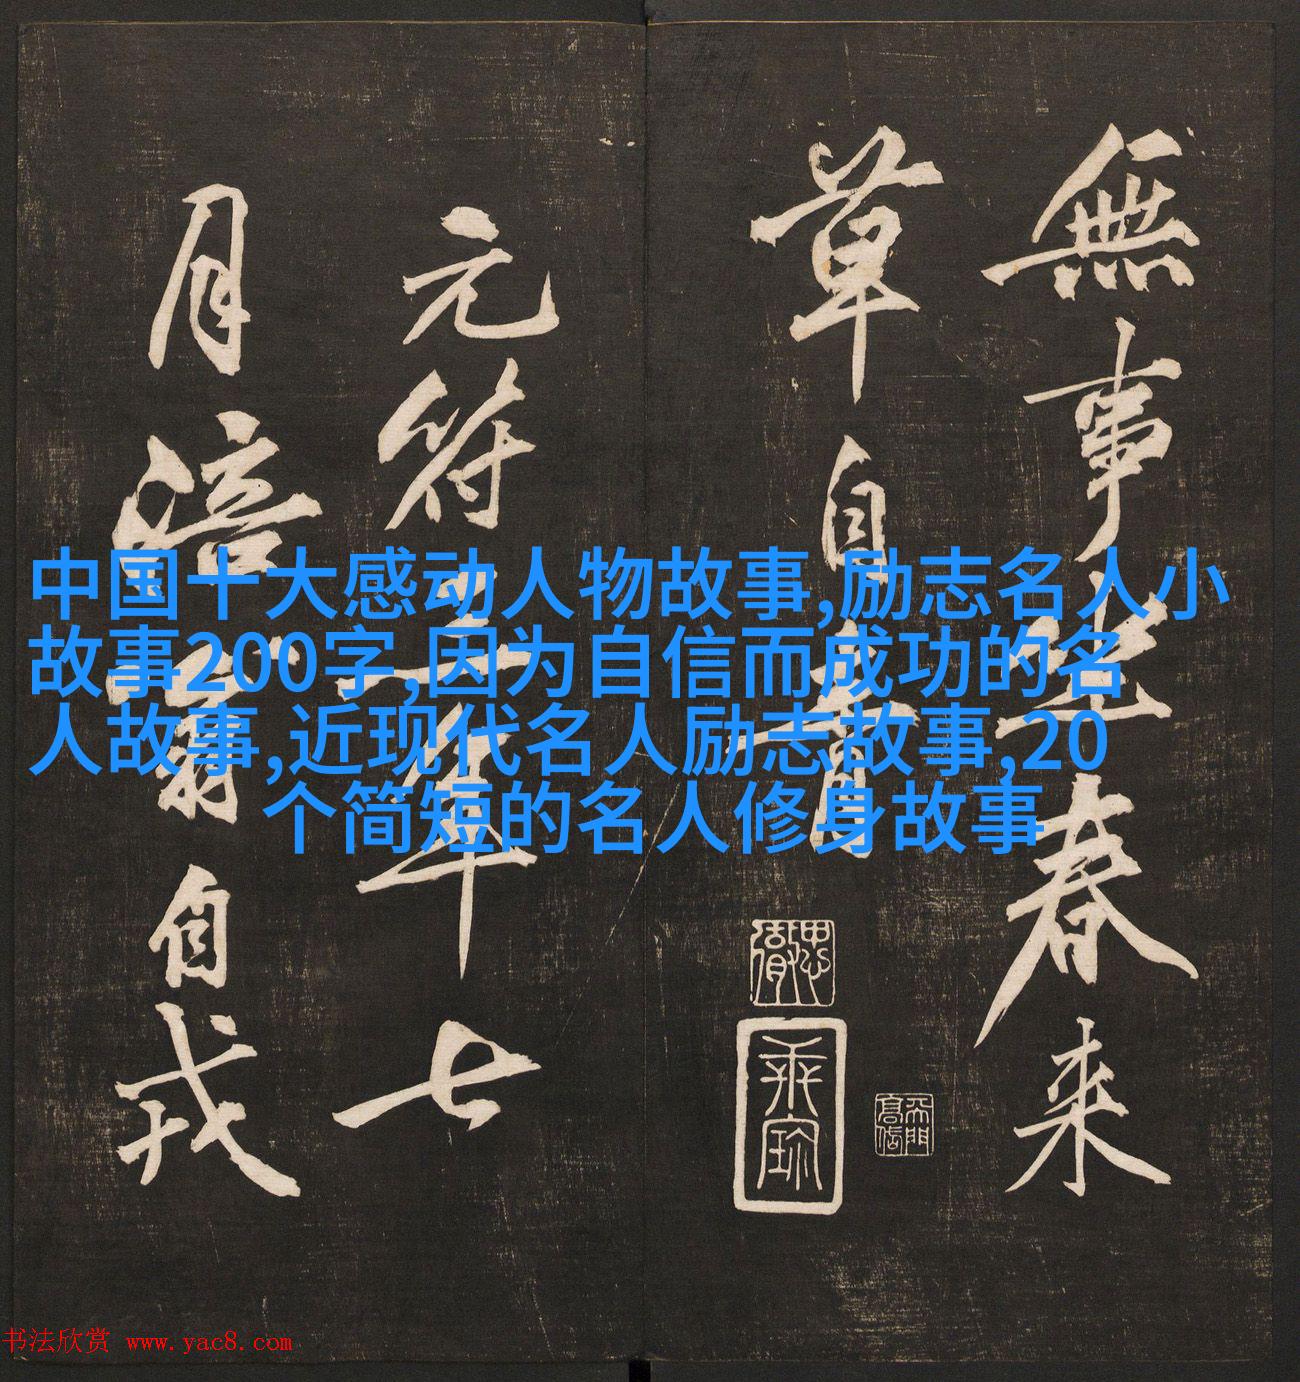 無事坐春来
草自青
元符三年七
月涪翁自戎
中国十大感动人物故事,励志名人小
故事200字,因为自信而成功的名
人故事,近现代名人励志故事,20
个简短的名人修身故事
书法欣赏 www.yac8.com